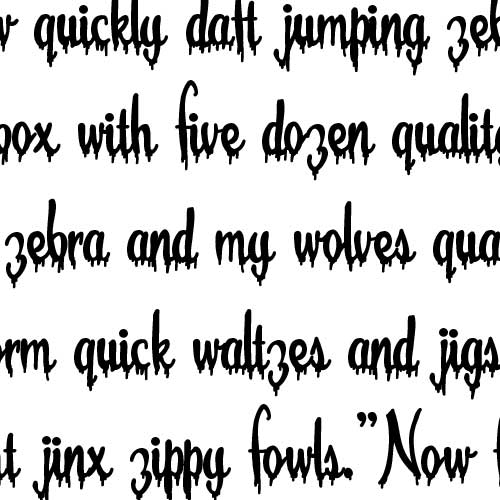 quickly daft jumping zeb
box with five dozen quality
zebra and my wolves qua
orm quick waltzes and jigs
jinx zippy fowls.” Now